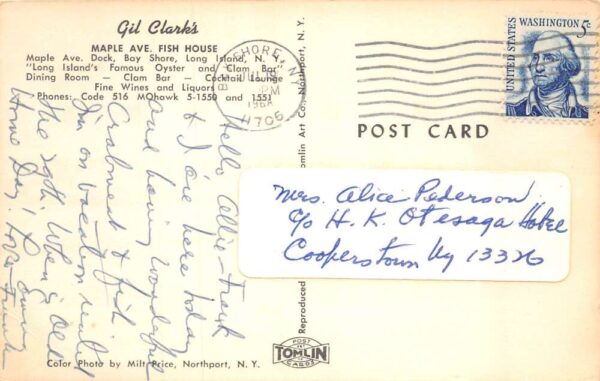 Gil Clark's
MAPLE AVE. FISH HOUSE
Maple Ave. Dock, Bay Shore, Long Island, N. Y.
"Long Island's Famous Oyster and Clam Bar"
Dining Room — Clam Bar — Cocktail Lounge
Fine Wines and Liquors
Phones: Code 516 MOhawk 5-1550 and 1551
Hello Allie - Frank
& I are here today
and having wonderful
Crabmeat & fish
I'm on vacation until
the 29th. When is Old
Home Day? Love
BAY SHORE, N.Y.
PM
11706
UNITED STATES
WASHINGTON 5¢
POST CARD
Mrs. Alice Pederson
c/o H. K. Otesaga Hotel
Cooperstown Ny 13326
Tomlin Art Co., Northport, N. Y.
Reproduced
POST
TOMLIN
CARDS
Color Photo by Milt Price, Northport, N. Y.